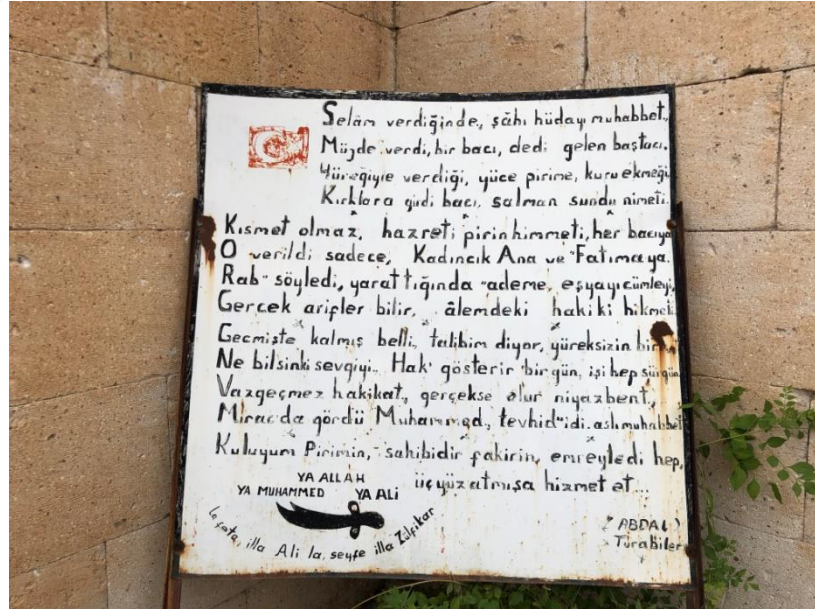 Selâm verdiğinde,, şâhı hüdayı muhabbet,,
Müjde verdi, bir bacı, dedi gelen baştacı.
Yüreğiyle verdiği, yüce pirime, kuru ekmeği
Kırklara girdi bacı, salman sundu nimeti.
Kısmet olmaz, hazreti pirin himmeti, her bacıya
O verildi sadece, Kadıncık Ana ve "Fatımaya.
Rab" söyledi, yarattığında "ademe, eşyayı cümleyi,
Gerçek arifler bilir, âlemdeki hakiki hikmeti
Geçmişte kalmış belli, talibim diyor, yüreksizin
Ne bilsinki sevgiyi.. Hak' gösterir bir gün, işi hep sürgün
Vazgeçmez hakikat, gerçekse olur niyazbent,,
Mirac'da gördü Muhammed,, tevhid"idi.aslı muhabbet
Kuluyum Pirimin, sahibidir fakirin, emreyledi hep,
üçyüzatmışa hizmet et...
YA ALLAH
YA MUHAMMED YA ALİ
Le feta, illa Ali la, seyfe illa Zülfikar
(ABDAL)
Turabiler